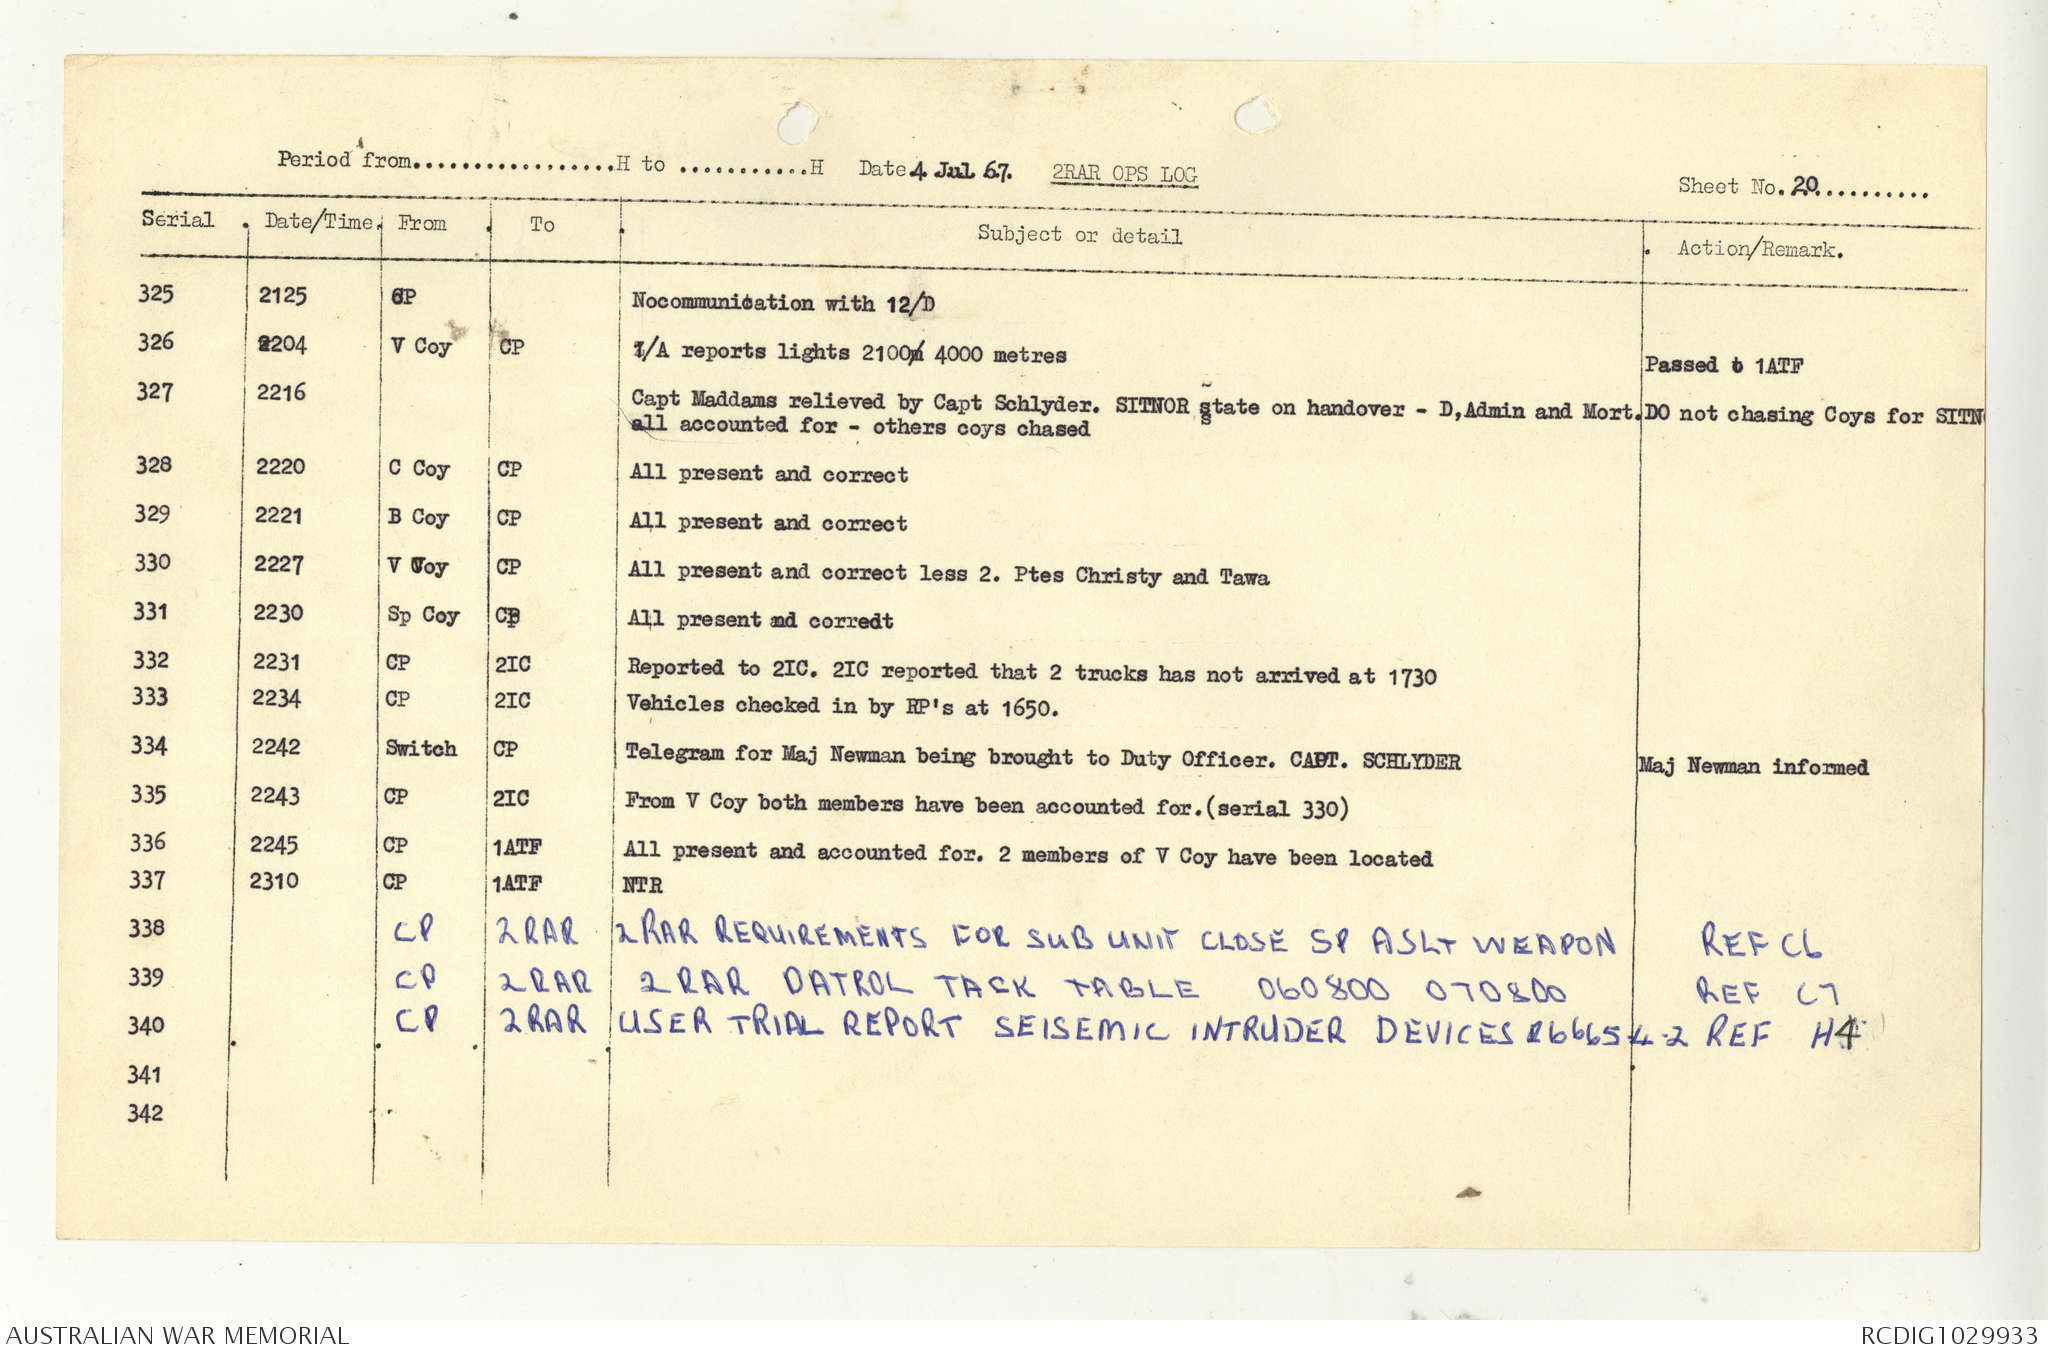 Period from.................H to ...........H Date 4 Jul 67. 2RAR OPS LOG
Sheet No. 20..........
Serial . Date/Time. From . To . Subject or detail . Action/Remark.
325 2125 CP Nocommunication with 12/D
326 2204 V Coy CP 1/A reports lights 2100m 4000 metres Passed to 1ATF
327 2216 Capt Maddams relieved by Capt Schlyder. SITNOR state on handover - D,Admin and Mort. DO not chasing Coys for SITN
all accounted for - others coys chased
328 2220 C Coy CP All present and correct
329 2221 B Coy CP All present and correct
330 2227 V Coy CP All present and correct less 2. Ptes Christy and Tawa
331 2230 Sp Coy CP All present and corredt
332 2231 CP 2IC Reported to 2IC. 2IC reported that 2 trucks has not arrived at 1730
333 2234 CP 2IC Vehicles checked in by RP's at 1650.
334 2242 Switch CP Telegram for Maj Newman being brought to Duty Officer. CAPT. SCHLYDER Maj Newman informed
335 2243 CP 2IC From V Coy both members have been accounted for.(serial 330)
336 2245 CP 1ATF All present and accounted for. 2 members of V Coy have been located
337 2310 CP 1ATF NTR
338 CP 2RAR 2RAR REQUIREMENTS FOR SUB UNIT CLOSE SP ASLT WEAPON REF C6
339 CP 2RAR 2RAR PATROL TASK TABLE 060800 070800 REF C7
340 CP 2RAR USER TRIAL REPORT SEISEMIC INTRUDER DEVICES R6665-4-2 REF H4
341
342
AUSTRALIAN WAR MEMORIAL
RCDIG1029933